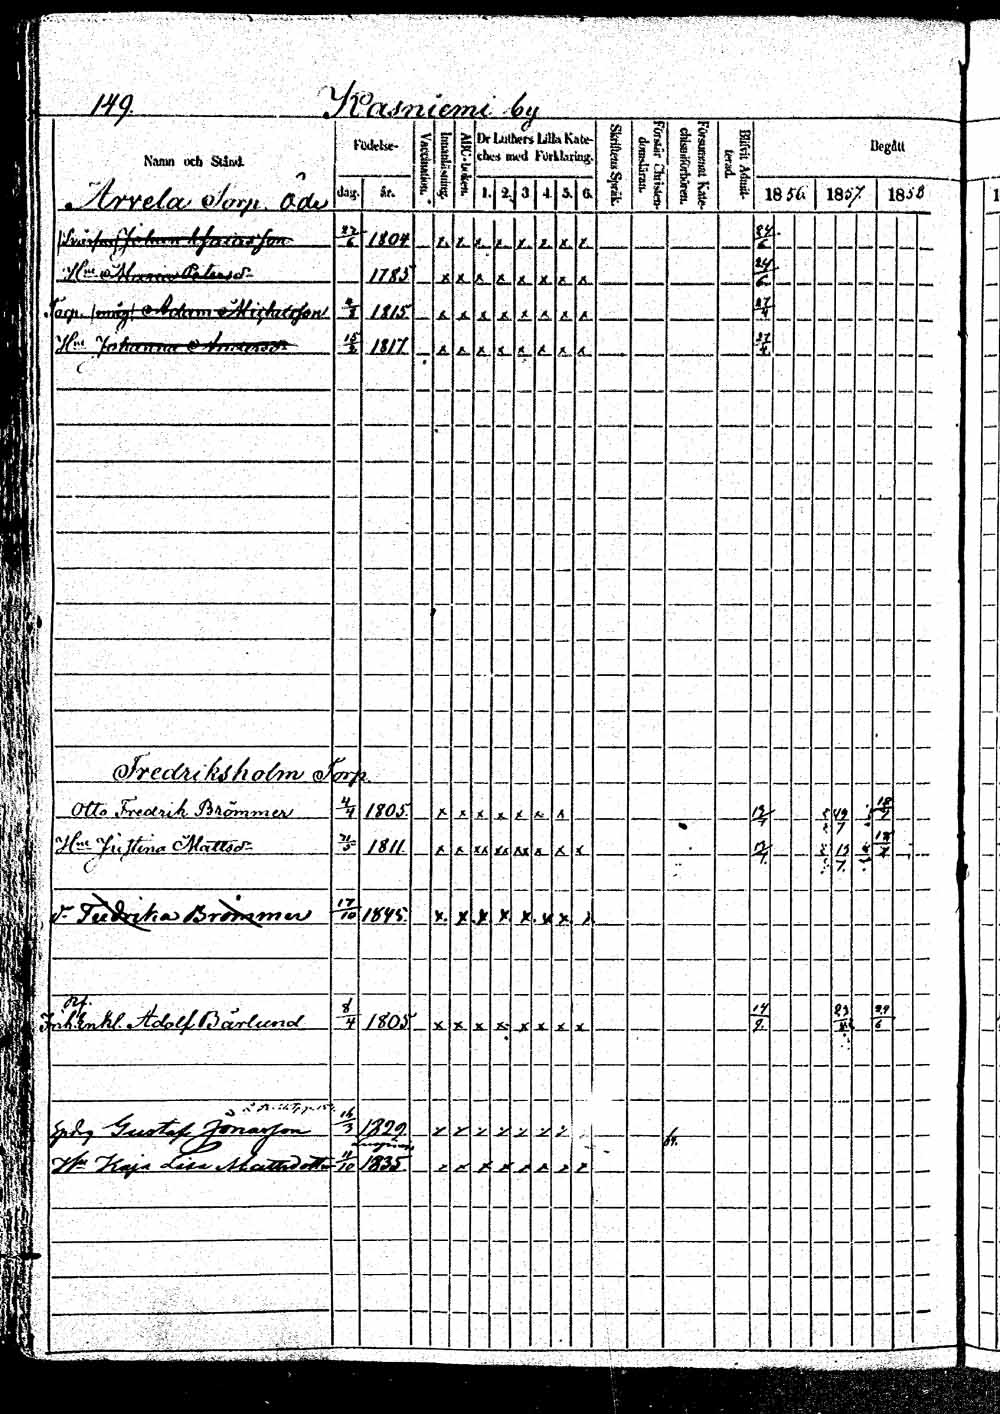 149. Kasniemi by
Namn och Stånd.
Födelse-
dag.
år.
Vaccination.
Innanläsning.
ABC-boken.
Dr Luthers Lilla Kate-
ches med Förklaring.
1. 2. 3 4. 5. 6.
Skriftens Språk
Förstår Christen-
domsläran.
Försummat Kate-
chismiförhören.
Blifvit Admit-
terad.
Begått
1856. 1857. 1858
Arvela Torp. Öde
Johan 27/6 1804 x x x x x x x x 24/6
Hnu Maria 1785 x x x x x x x x 24/6
Adam Michelsson 1815 x x x x x x x x 27/4
Hnu Johanna 15/2 1817 x x x x x x x x 27/4
Fredriksholm Torp.
Otto Fredrik Brömmer 4/4 1805. x x x x x x x
Hnu Justina Mattsd- 1811 x x xx xx xx x x x
d- Fredrika Brömmer 17/10 1845. x x x x x x x x
Inh. Enkl. Adolf Bärlund 8/4 1805 x x x x x x x x 14/9.
Gustaf Jonasson 16/3 1829 x x x x x x x
Hnu Kaja Lisa Mattsdotter 11/10 1835 x x x x x x x x